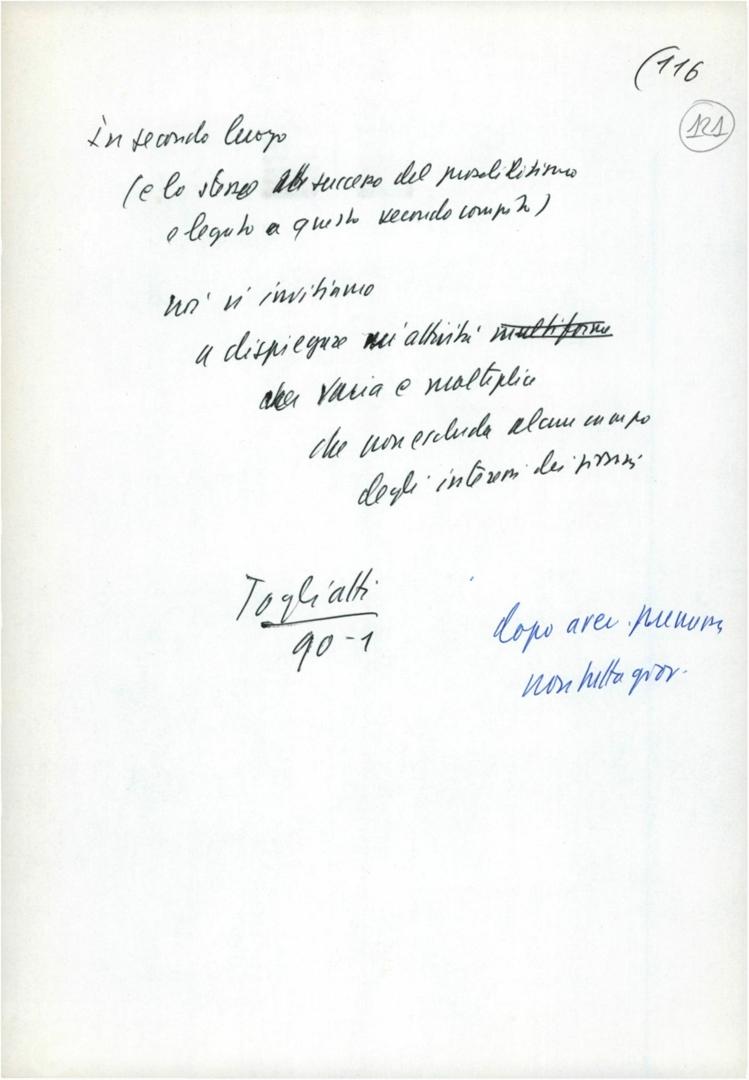 (116
121
In secondo luogo
(e lo stesso successo del proselitismo
è legato a questo secondo compito)
noi vi invitiamo
a dispiegare un'attività multiforme
varia e molteplice
che non escluda alcun campo
degli interessi dei giovani
Togliatti
90-1
dopo aver
non tutta giov.